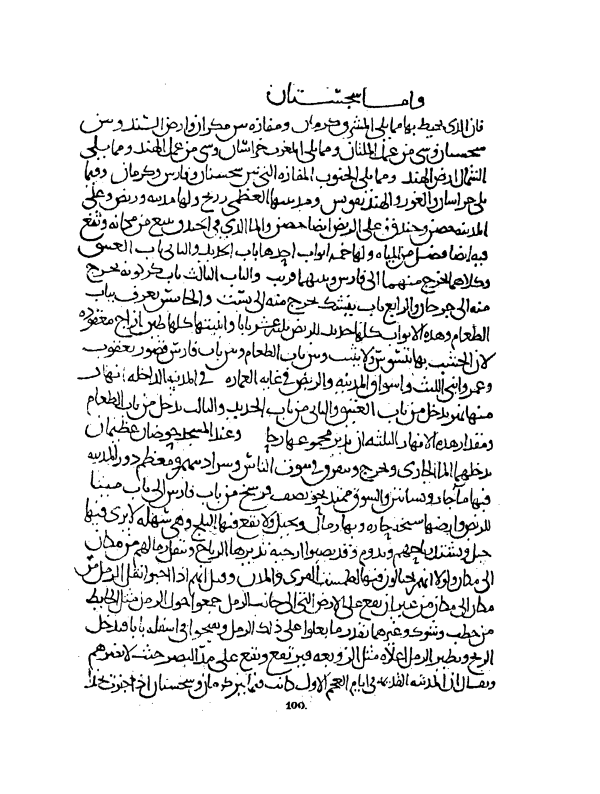 واما سجستان
فان الذي يحيط بها مما يلي المشرق وكرمان ومفازه بين مكران وارض السند وبين
سجستان وشي من عمل الملتان ومما يلي المغرب خراسان وشي من عمل الهند ومما يلي
الشمال ارض الهند ومما يلي الجنوب المفازه التي بين سجستان وفارس وكرمان وفيما
يلي خراسان والغور والهند تقويس ومدينتها العظمى زرنج ولها مدينه وربض وعلى
المدينه حصن وخندق وعلى الربض ايضا حصن والماء الذي في الخندق ينبع من مكانه وتقع
فيه ايضا فضل من المياه ولها خمسه ابواب احدها باب الحديد والثاني باب العتيق
وكلاهما يخرج منهما الى فارس وبينهما قريب والباب الثالث باب كركويه يخرج
منه الى خراسان والرابع باب نيشك يخرج منه الى بست والخامس يعرف بباب
الطعام وهذه الابواب كلها حديد وللربض ثلثه عشر بابا وابنيتها كلها طين ازاج معقوده
لان الخشب بها يتسوس ولا يثبت وبين باب الطعام وبين باب فارس قصور يعقوب
وعمرو ابني الليث واسواق المدينه والربض في غايه العماره في المدينه الداخله انهار
منها نهر يدخل من باب العتيق والثاني من باب الحديد والثالث يدخل من باب الطعام
ومقدار هذه الانهار الثلثه اذا مجموعها رحا وعند المسجد حوضان عظيمان
يدخلهما الماء الجاري ويخرج ويتفرق في بيوت الناس وسراديبهم ومعظم دور المدينه
فيها ماء جار وبساتين والسوق ممتد نحو نصف فرسخ من باب فارس الى باب مينا
للربض وارضها سبخه حاره وبها رمال ونخيل ولا يقع فيها الثلج وهي سهله لا يرى فيها
جبل وتشتد رياحهم وتدوم وقد نصبوا ارحيه تديرها الرياح وتنقل رمالهم من مكان
الى مكان ولولا انهم يحتالون فيها لطمست القرى والمدن وقيل انهم اذا احبوا نقل الرمل من
مكان الى مكان من غير ان يقع على الارض التي الى جانب الرمل جمعوا حول الرمل مثل الحايط
من حطب وشوك وغيرهما بقدر ما يعلوا على ذلك الرمل وفتحوا في اسفله بابا فتدخل
الريح وتطير الرمل اعلاه مثل الزوبعه فيرتفع ويقع على مد البصر حيث لا يضرهم
ويقال ان المدينه القديمه في ايام العجم الاول كانت فيما بين كرمان وسجستان اذا جزت
100.